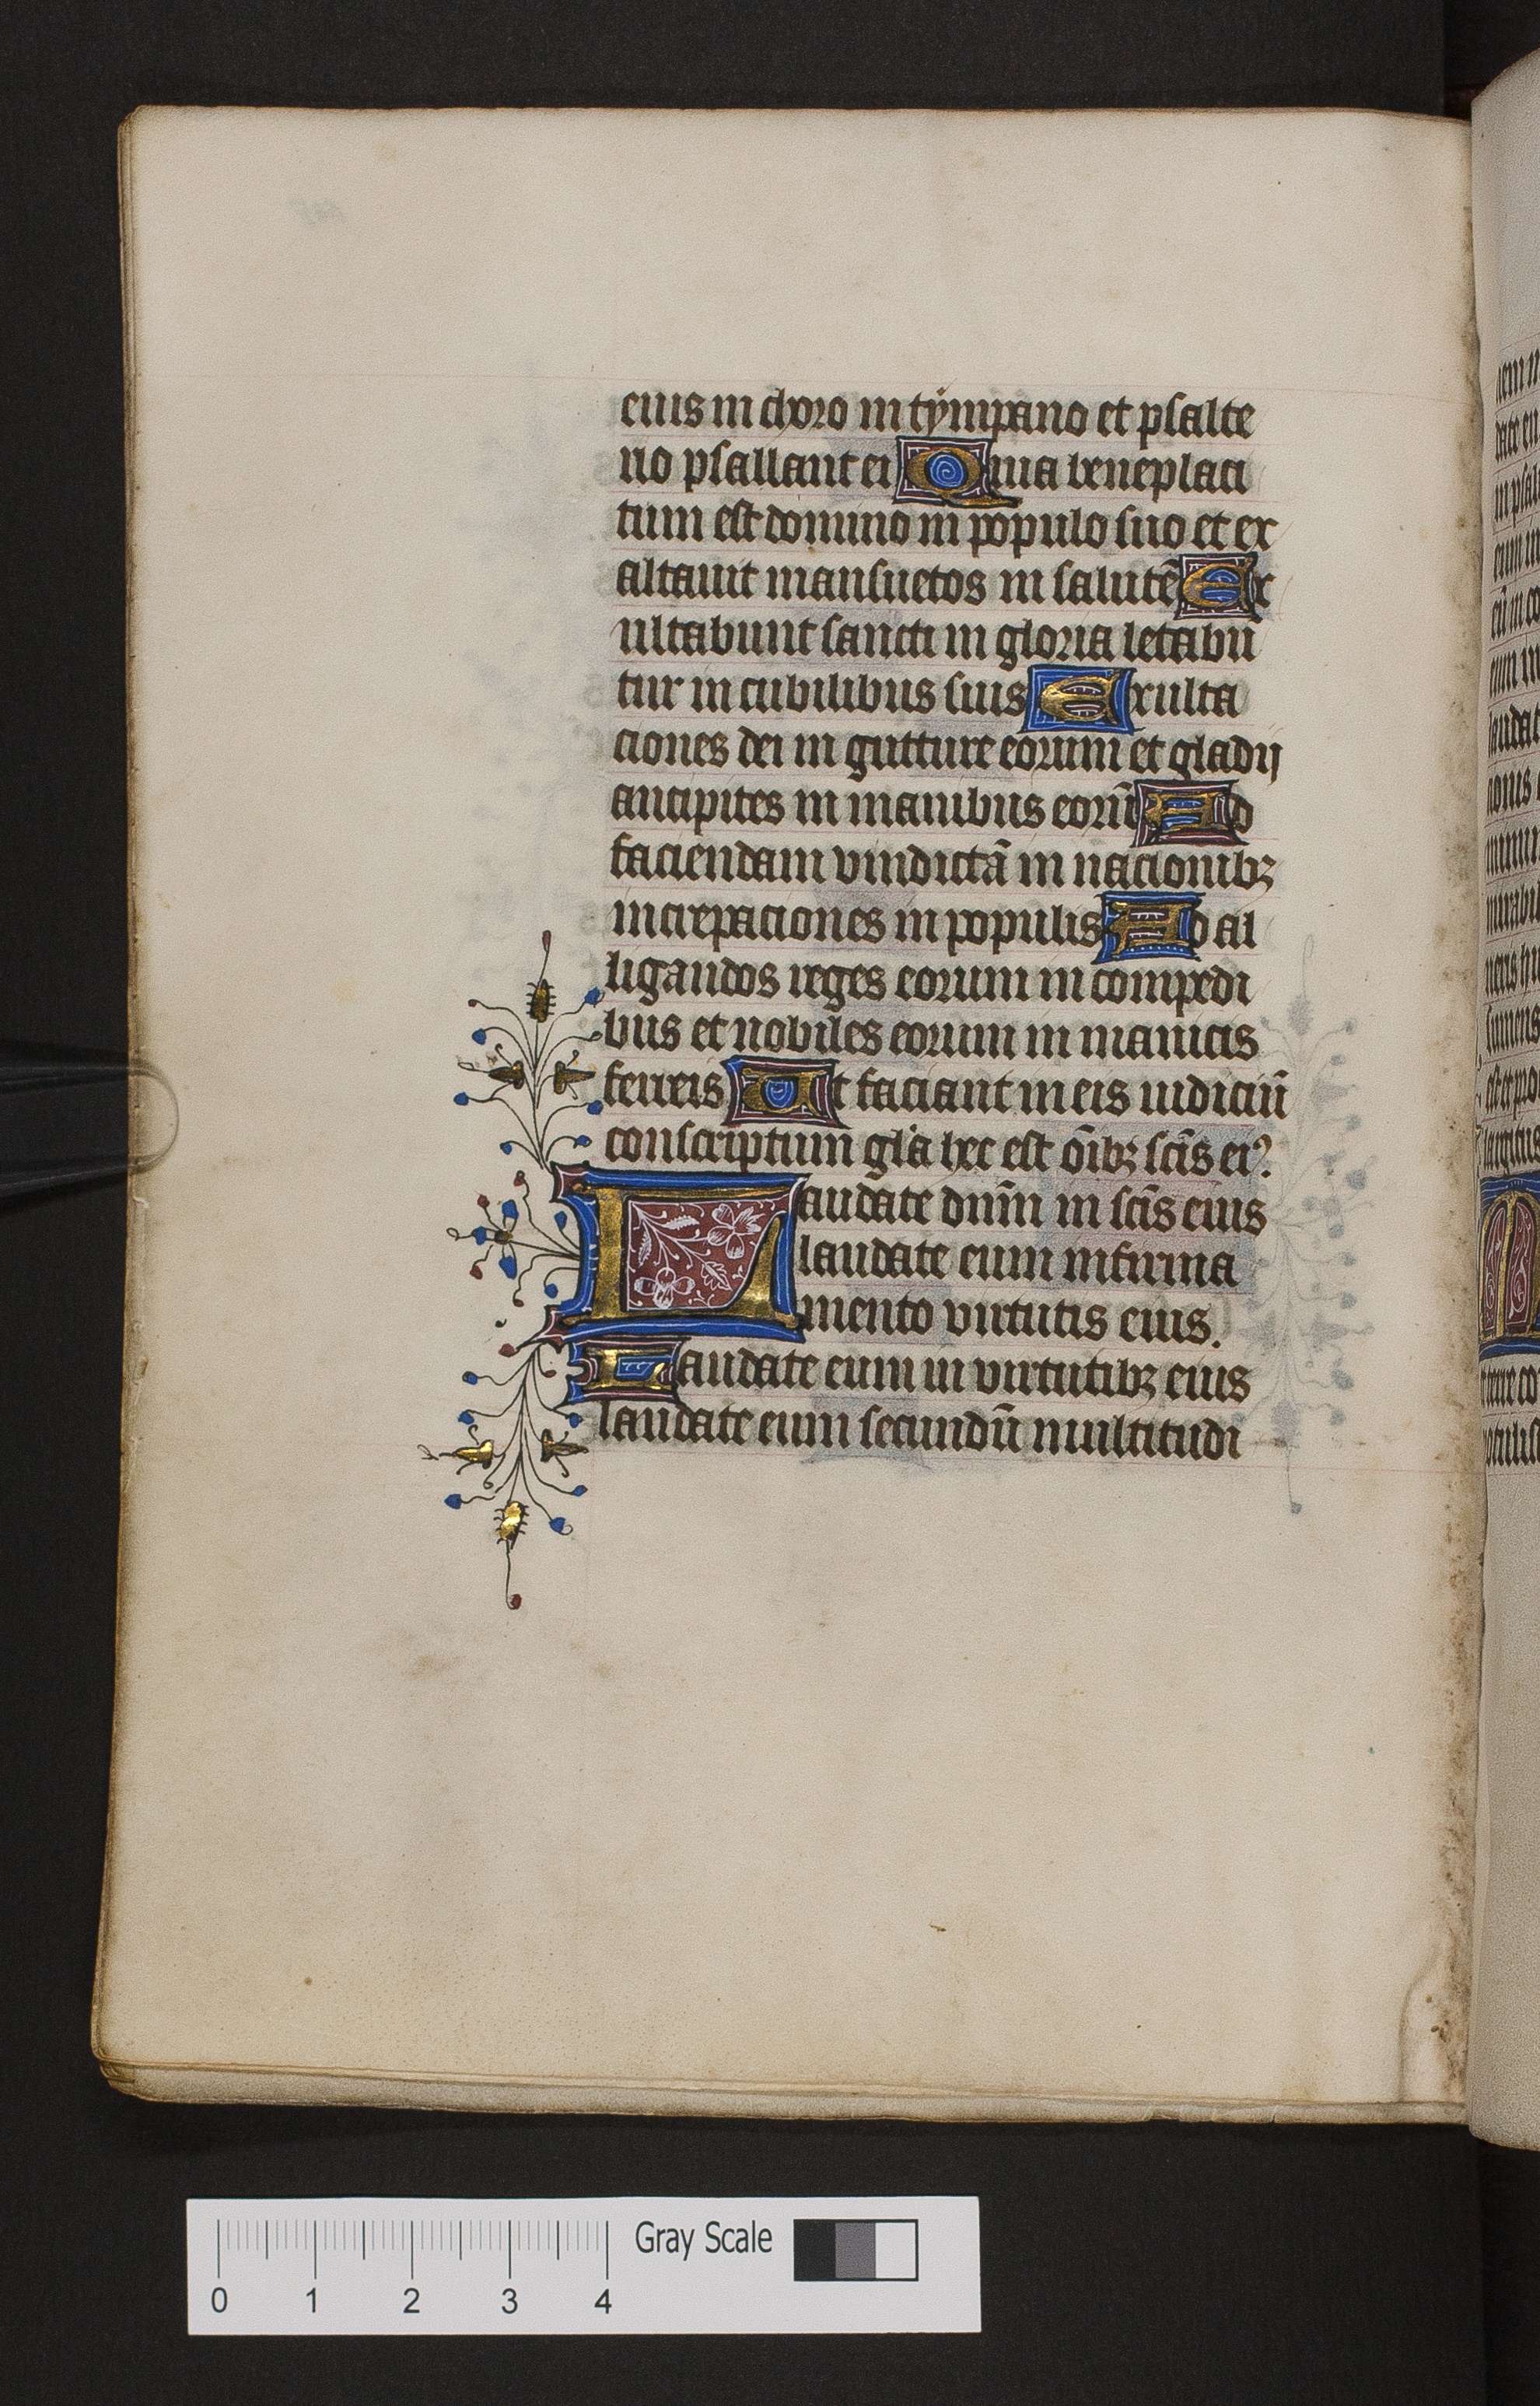 eius in choro in tÿmpano et psalte
rio psallant ei Quia beneplaci
tum est domino in populo suo et ex
altauit mansuetos in salutē Ex
ultabunt sancti in gloria letabū
tur in cubilibus suis Exulta
ciones dei in gutture eorum et gladij
ancipites in manibus eorū Ad
faciendam vindictā in nacionibꝫ
increpaciones in populis Ad al
ligandos reges eorum in compedi
bus et nobiles eorum in manicis
ferreis Ut faciant in eis iudiciū
conscriptum gl'a hec est ōibꝫ scīs ei?
Laudate dnm̄ in scīs eius
laudate eum in firma
mento virtutis eius.
Laudate eum in virtutibꝫ eius
laudate eum secundū multitudi
Gray Scale
0 1 2 3 4